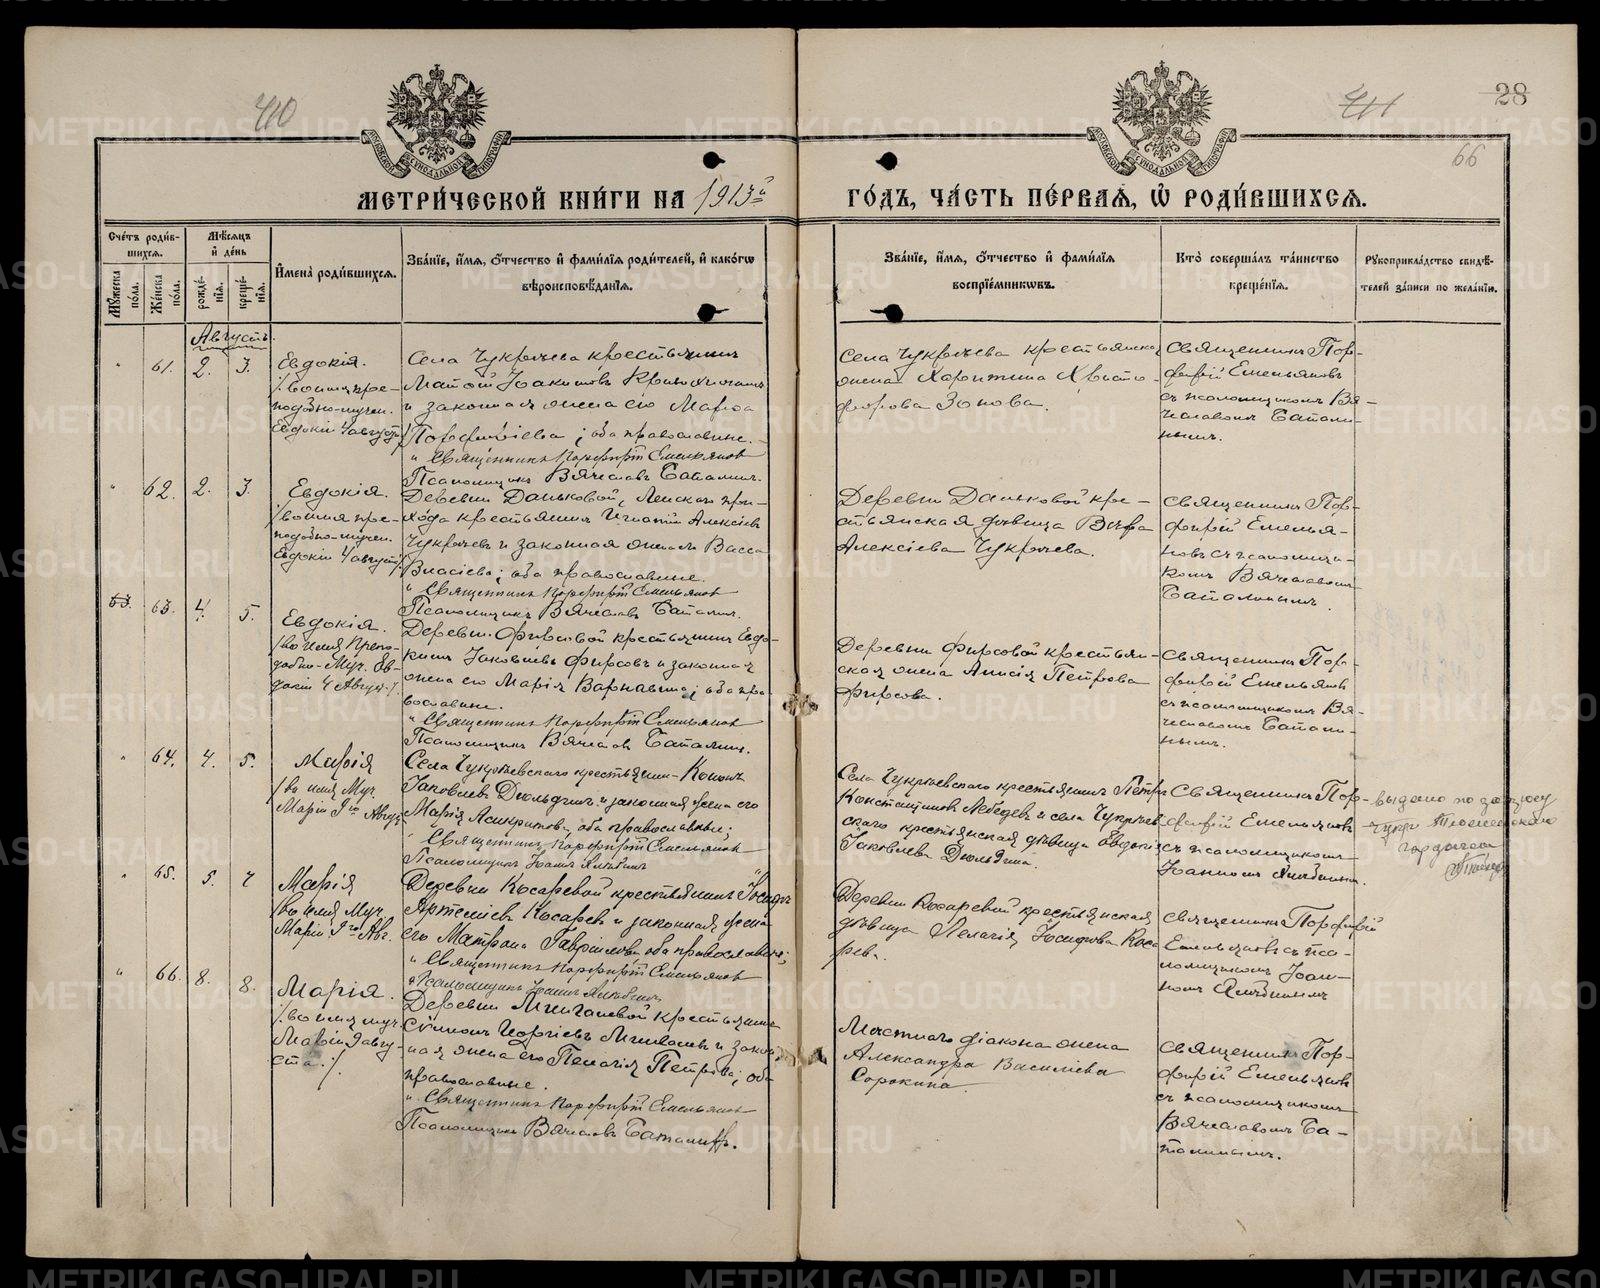 410
411
28
66
МОСКОВСКОЙ СѴНОДАЛЬНОЙ ТИПОГРАФІИ
МОСКОВСКОЙ СѴНОДАЛЬНОЙ ТИПОГРАФІИ
МЕТРИ́ЧЕСКОЙ КНИ́ГИ НА 1913й
ГО́ДЪ, ЧА́СТЬ ПЕ́РВАѦ, Ѡ҆ РОДИ́ВШИХСѦ.
Сче́тъ роди́в-
шихсѧ.
Мѣ́сѧцъ
и҆ де́нь
Мꙋ́жеска
по́ла.
Же́нска
по́ла.
рожде́-
нїѧ.
креще́-
нїѧ.
И҆мена̀ роди́вшихсѧ.
Зва́нїе, и҆́мѧ, ѻ҆́тчество и҆ фами́лїѧ роди́телей, и҆ како́гѡ
вѣроисповѣ́данїѧ.
Зва́нїе, и҆́мѧ, ѻ҆́тчество и҆ фами́лїѧ
воспрїе́мникѡвъ.
Кто̀ соверша́лъ та́инство
креще́нїѧ.
Рꙋкоприкла́дство свидѣ́-
телей за́писи по жела́нїю.
Августъ.
" 61. 2. 3.
Евдокія.
/во имя пре-
подобно-мучен.
Евдокіи 4 августа/
Села Чукреева крестьянинъ
и законная жена его Марѳа
Порфиріева; оба православные.
" Священникъ Порфирій Емельяновъ
Псаломщикъ Вячеславъ Баталинъ.
Села Чукреева крестьянская
жена Харитина Христо-
форова Зонова.
Священникъ Пор-
фирій Емельяновъ
съ псаломщикомъ Вя-
чеславомъ Батали-
нымъ.
" 62. 2. 3.
Евдокія.
/во имя пре-
подобно-мучен.
Евдокіи 4 августа/
Деревни Даньковой, Ленскаго при-
хода крестьянинъ Игнатій Алексіевъ
Чукреевъ и законная жена Васса
Власіева; оба православные.
" Священникъ Порфирій Емельяновъ
Псаломщикъ Вячеславъ Баталинъ.
Деревни Даньковой кре-
стьянская дѣвица Вѣра
Алексіева Чукреева.
Священникъ Пор-
фирій Емелья-
новъ съ псаломщи-
комъ Вячеславомъ
Баталинымъ.
63. 63. 4. 5.
Евдокія.
/во имя Препо-
добно-Муч. Ев-
докіи 4 Август./
Деревни Фирсовой крестьянинъ Евдо-
кимъ Іаковлевъ Фирсовъ и законная
жена его Марія Варнавина; оба пра-
вославные.
" Священникъ Порфирій Емельяновъ
Псаломщикъ Вячеславъ Баталинъ.
Деревни Фирсовой крестьян-
ская жена Анисія Петрова
Фирсова.
Священникъ Пор-
фирій Емельяновъ
съ псаломщикомъ Вя-
чеславомъ Батали-
нымъ.
" 64. 4. 5.
Марія
/во имя Муч.
Маріи 9го Август.
Села Чукреевскаго крестьянинъ Кононъ
Іаковлевъ Дюльдинъ и законная жена его
Марія Асикритова, оба православные;
Священникъ Порфирій Емельяновъ
Псаломщикъ Іоаннъ
Села Чукреевскаго крестьянинъ Петръ
Константиновъ Лебедевъ и села Чукреев-
скаго крестьянская дѣвица Евдокія
Іаковлева Дюльдина.
Священникъ Пор-
фирій Емельяновъ
съ псаломщикомъ
Іоанномъ
выдано по запросу
" 65. 5. 7
Марія
/во имя Муч.
Маріи 9го Авг.
Деревни Косаревой крестьянинъ Іосифъ
Артеміевъ Косаревъ и законная жена
его Матрона Гавріилова, оба православные;
" Священникъ Порфирій Емельяновъ
Псаломщикъ Іоаннъ
Деревни Косаревой крестьянская
дѣвица Пелагія Іосифова Коса-
рева.
Священникъ Порфирій
Емельяновъ съ пса-
ломщикомъ Іоан-
номъ
" 66. 8. 8.
Марія.
/во имя муч.
Маріи 9 авгу-
ста./
Деревни Мишагиной крестьянинъ
Симеонъ Георгіевъ и закон-
ная жена его Пелагія Петрова; оба
православные.
" Священникъ Порфирій Емельяновъ
Псаломщикъ Вячеславъ Баталинъ.
Мѣстнаго діакона жена
Александра Василіева
Сорокина.
Священникъ Пор-
фирій Емельяновъ
съ псаломщикомъ
Вячеславомъ Ба-
талинымъ.
METRIKI.GASO-URAL.RU